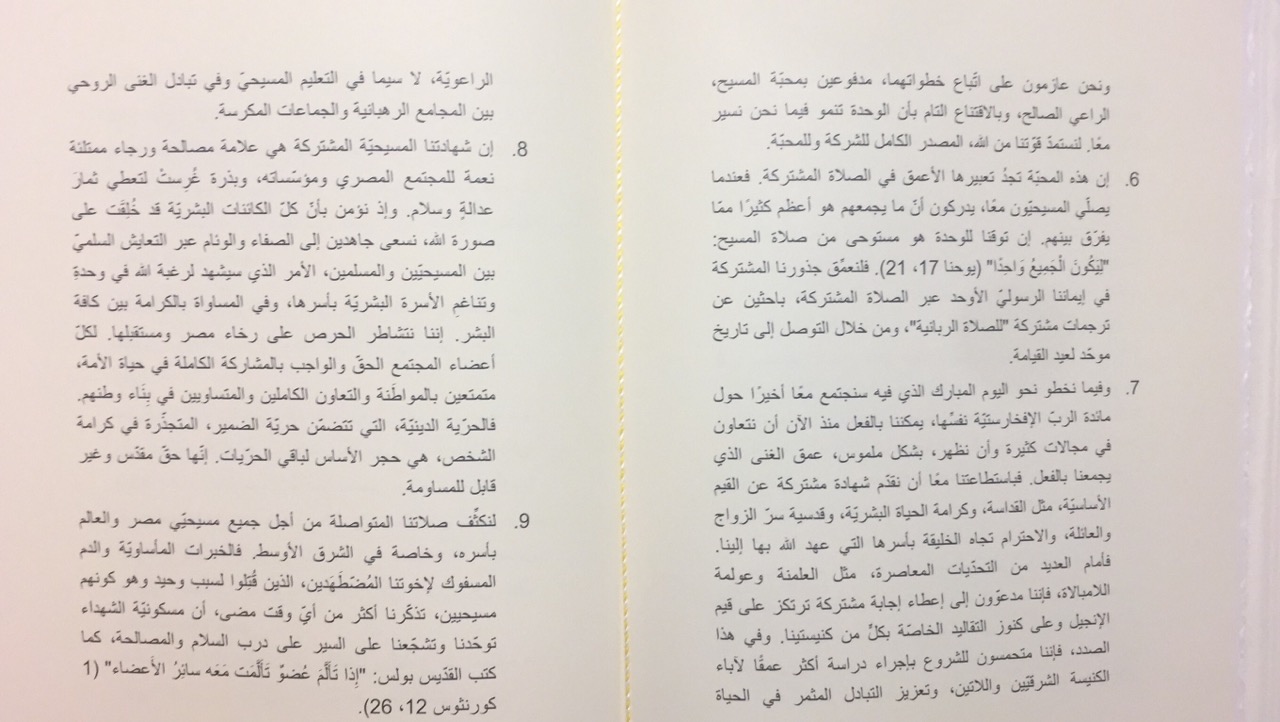 ونحن عازمون على اتّباع خطواتهما، مدفوعين بمحبّة المسيح،
الراعي الصالح، وبالاقتناع التام بأن الوحدة تنمو فيما نحن نسير
معًا. لنستمدّ قوّتنا من الله، المصدر الكامل للشركة وللمحبّة.
6. إن هذه المحبّة تجدُ تعبيرها الأعمق في الصلاة المشتركة. فعندما
يصلّي المسيحيّون معًا، يدركون أنّ ما يجمعهم هو أعظم كثيرًا ممّا
يفرّق بينهم. إن توقنا للوحدة هو مستوحى من صلاة المسيح:
"لِيَكُونَ الْجَمِيعُ وَاحِدًا" (يوحنا 17، 21). فلنعمِّق جذورنا المشتركة
في إيماننا الرسوليّ الأوحد عبر الصلاة المشتركة، باحثين عن
ترجمات مشتركة "للصلاة الربانية"، ومن خلال التوصل إلى تاريخ
موحّد لعيد القيامة.
7. وفيما نخطو نحو اليوم المبارك الذي فيه سنجتمع معًا أخيرًا حول
مائدة الربّ الإفخارستيّة نفسِّها، يمكننا بالفعل منذ الآن أن نتعاون
في مجالات كثيرة وأن نظهر، بشكل ملموس، عمق الغنى الذي
يجمعنا بالفعل. فباستطاعتنا معًا أن نقدّم شهادة مشتركة عن القيم
الأساسيّة، مثل القداسة، وكرامة الحياة البشريّة، وقدسية سرّ الزواج
والعائلة، والاحترام تجاه الخليقة بأسرها التي عهد الله بها إلينا.
فأمام العديد من التحدّيات المعاصرة، مثل العلمنة وعولمة
اللامبالاة، فإننا مدعوّون إلى إعطاء إجابة مشتركة ترتكز على قيم
الإنجيل وعلى كنوز التقاليد الخاصّة بكلٍّ من كنيستينا. وفي هذا
الصدد، فإننا متحمسون للشروع بإجراء دراسة أكثر عمقًا لآباء
الكنيسة الشرقيّين واللاتين، وتعزيز التبادل المثمر في الحياة
الراعويّة، لا سيما في التعليم المسيحيّ وفي تبادل الغنى الروحي
بين المجامع الرهبانية والجماعات المكرسة.
8. إن شهادتنا المسيحيّة المشتركة هي علامة مصالحة ورجاء ممتلئة
نعمة للمجتمع المصري ومؤسّساته، وبذرة غُرِستْ لتعطي ثمارَ
عدالةٍ وسلام. وإذ نؤمن بأنّ كلّ الكائنات البشريّة قد خُلِقَت على
صورة الله، نسعى جاهدين إلى الصفاء والوئام عبر التعايش السلميّ
بين المسيحيّين والمسلمين، الأمر الذي سيشهد لرغبة الله في وحدةِ
وتناغمِ الأسرة البشريّة بأسرها، وفي المساواة بالكرامة بين كافة
البشر. إننا نتشاطر الحرص على رخاء مصر ومستقبلها. لكلّ
أعضاء المجتمع الحقّ والواجب بالمشاركة الكاملة في حياة الأمة،
متمتعين بالمواطَنة والتعاون الكاملين والمتساويين في بِنَاء وطنهم.
فالحرّية الدينيّة، التي تتضمّن حريّة الضمير، المتجذّرة في كرامة
الشخص، هي حجر الأساس لباقي الحرّيات. إنّها حقّ مقدّس وغير
قابل للمساومة.
9. لنكثِّف صلاتنا المتواصلة من أجل جميع مسيحيّي مصر والعالم
بأسره، وخاصة في الشرق الأوسط. فالخبرات المأساويّة والدم
المسفوك لإخوتنا المُضْطَهَدين، الذين قُتِلوا لسبب وحيد وهو كونهم
مسيحيين، تذكّرنا أكثر من أيّ وقت مضى، أن مسكونيّة الشهداء
توحّدنا وتشجّعنا على السير على درب السلام والمصالحة، كما
كتب القدّيس بولس: "إِذا تَأَلَّمَ عُضوٌ تَأَلَّمَت مَعَه سائِرُ الأَعضاء" (1
كورنثوس 12، 26).